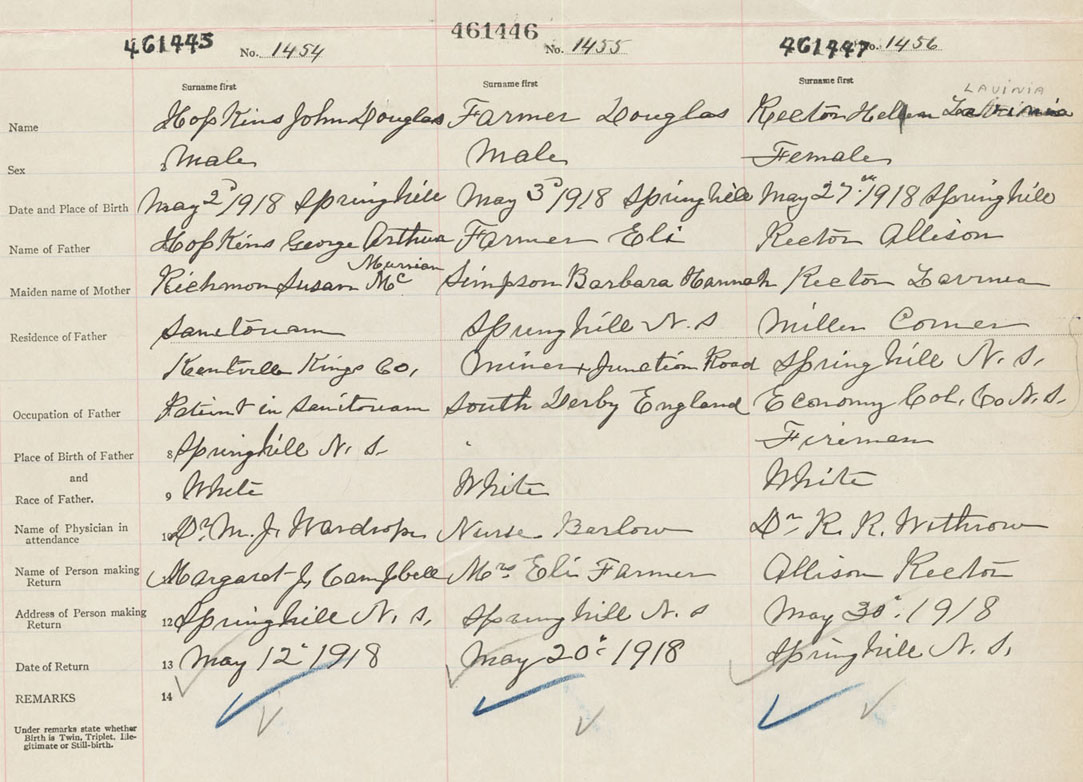 461445 No. 1454 461446 No. 1455 461447 No. 1456
Surname first Surname first Surname first
LAVINIA
Name Hopkins John Douglas Farmer Douglas Rector Helen
Sex Male Male Female
Date and Place of Birth May 2d/1918 Springhill May 3d/1918 Springhill May 27th 1918 Springhill
Name of Father Hopkins George Arthur Farmer Eli Rector Allison
Maiden name of Mother Richmon Susan Mc Simpson Barbara Hannah Rector Lavinia
Residence of Father Sanitoriam Springhill N.S Miller Corner
Kentville Kings Co, Miner + Junction Road Springhill N. S.
Occupation of Father Patient in Sanitoriam South Derby England Economy Col. Co N.S.
Place of Birth of Father 8 Springhill N. S. Fireman
and
Race of Father. 9 White White White
Name of Physician in attendance 10 Dr. M. J. Wardrope Nurse Barlow Dr R. R. Withrow
Name of Person making Return Margaret J. Campbell Mrs Eli Farmer Allison Rector
Address of Person making Return 12 Springhill N. S. Springhill N. S May 30. 1918
Date of Return 13 May 12 1918 May 20 1918 Springhill N. S.
REMARKS 14
Under remarks state whether
Birth is Twin, Triplet, Ille-
gitimate or Still-birth.